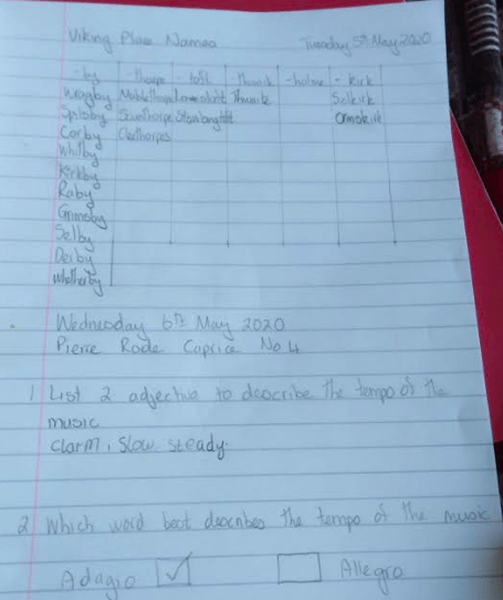 Viking Place Names Tuesday 5th May 2020
-by -thorpe -toft -thwaite -holme -kirk
Wragby Mablethorpe Lowestoft Thwaite Selkirk
Spilsby Scunthorpe Ormskirk
Corby Cleethorpes
Whitby
Kirkby
Raby
Grimsby
Selby
Derby
Whetherby
Wednesday 6th May 2020
Pierre Rode Caprice No 4
1 List 2 adjective to describe the tempo of the
music
Clarm, Slow steady.
2 Which word best describes the tempo of the music
Adagio Allegro